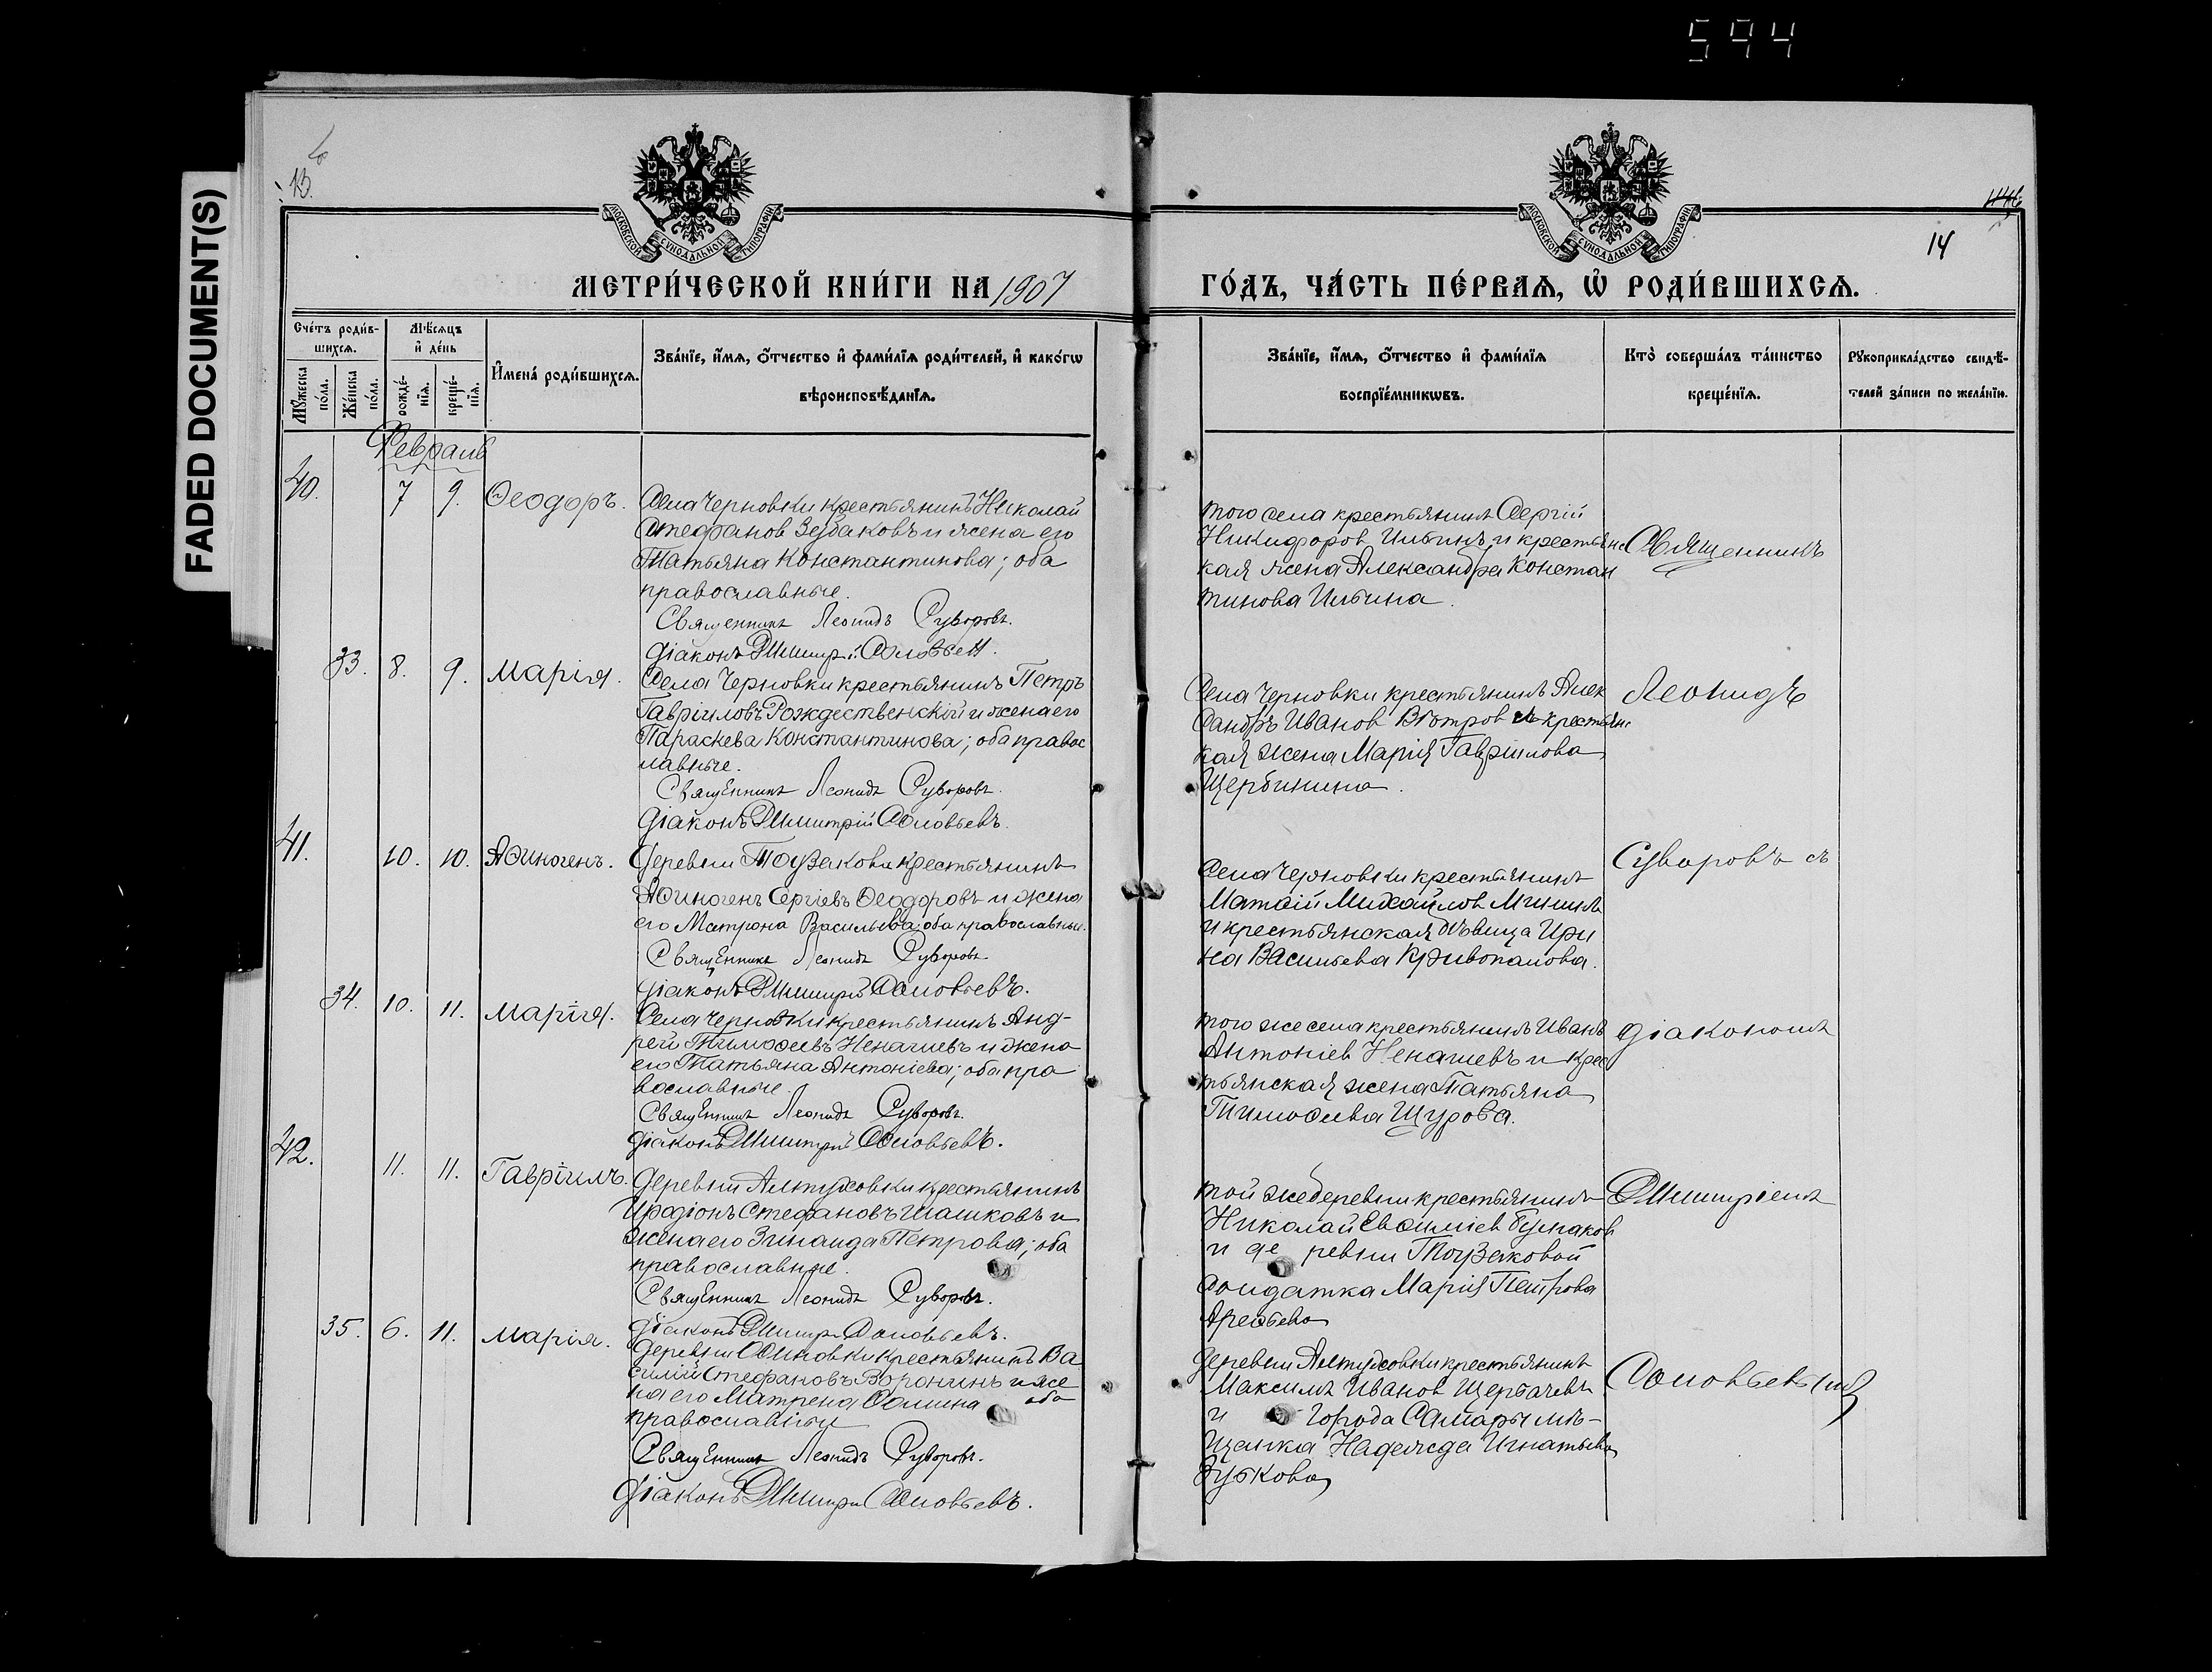 594
FADED DOCUMENT(S)
13.
14
МОСКОВСКОЙ СѴНОДАЛЬНОЙ ТИПОГРАФІИ
МОСКОВСКОЙ СѴНОДАЛЬНОЙ ТИПОГРАФІИ
МЕТРИ́ЧЕСКОЙ КНИ́ГИ НА 1907
ГО́ДЪ, ЧА́СТЬ ПЕ́РВАѦ, Ѡ҆ РОДИ́ВШИХСѦ.
Сче́тъ роди́вшихсѧ.
Мꙋ́жеска по́ла.
Же́нска по́ла.
Мѣ́сѧцъ и҆ де́нь
рожде́нїѧ.
креще́нїѧ.
И҆мена̀ роди́вшихсѧ.
Зва́нїе, и҆́мѧ, ѻ҆́тчество и҆ фами́лїѧ роди́телей, и҆ како́гѡ
вѣроисповѣ́данїѧ.
Зва́нїе, и҆́мѧ, ѻ҆́тчество и҆ фами́лїѧ
воспрїе́мникѡвъ.
Кто̀ соверша́лъ та́инство
креще́нїѧ.
Рꙋкоприкла́дство свидѣ́-
телей за́писи по жела́нїю.
Февраль
40. 7 9. Ѳеодоръ.
Села Черновки крестьянинъ Николай
Стефанов Зубаковъ и жена его
Татьяна Константинова; оба
православные.
Священникъ Леонидъ Суворовъ.
Діаконъ Димитрій Соловьев.
того села крестьянинъ Сергій
Никифоров Ильинъ и крестьянс
кая жена Александра Констан
тинова Ильина.
Священникъ
33. 8. 9. Марія.
Села Черновки крестьянинъ Петръ
Гавріиловъ Рождественскій и жена его
Параскева Константинова; оба правос
лавные.
Священникъ Леонидъ Суворовъ.
Діаконъ Димитрій Соловьевъ.
Села Черновки крестьянинъ Алек
сандръ Иванов Вѣтров и крестьянс
кая жена Марія Гавріилова
Щербинина.
Леонидъ
41. 10. 10. Аѳиногенъ.
Деревни Тоузаковы крестьянинъ
Аѳиногенъ Сергіевъ Ѳеодоровъ и жена
его Матрона Васильева; оба православные.
Священникъ Леонидъ Суворовъ.
Діаконъ Димитрій Соловьевъ.
Села Черновки крестьянинъ
Матѳій Михайлов Мининъ
и крестьянская дѣвица Ири
на Васильева Кривопалова.
Суворовъ съ
34. 10. 11. Марія.
Села Черновки крестьянинъ Анд-
рей Тимоѳеевъ Ненашевъ и жена
его Татьяна Антоніева; оба пра
вославные.
Священникъ Леонидъ Суворовъ.
Діаконъ Димитрій Соловьевъ.
того же села крестьянинъ Иванъ
Антоніев Ненашевъ и крес
тьянская жена Татьяна
Тимоѳеева Щурова.
діакономъ
42. 11. 11. Гавріилъ.
Деревни Алтуховки крестьянинъ
Иродіонъ Стефановъ Шашковъ и
жена его Зинаида Петрова; оба
православные.
Священникъ Леонидъ Суворовъ.
Діаконъ Димитр Соловьевъ.
той же деревни крестьянинъ
Николай Евѳиміев
и де ревни Тоузаковой
солдатка Марія Петрова
Арефьева
Димитріемъ
35. 6. 11. Марія.
Деревни Осиновки крестьянинъ Ва
силій Стефановъ Воронинъ и же
на его Матрена Ѳомина оба
православные
Священникъ Леонидъ Суворовъ.
Діаконъ Димитри Соловьевъ.
деревни Алтуховки крестьянинъ
Максимъ Иванов Щербачевъ
и города Самары мѣ-
щанка Надежда Игнатьева
Зубкова
Соловьевымъ